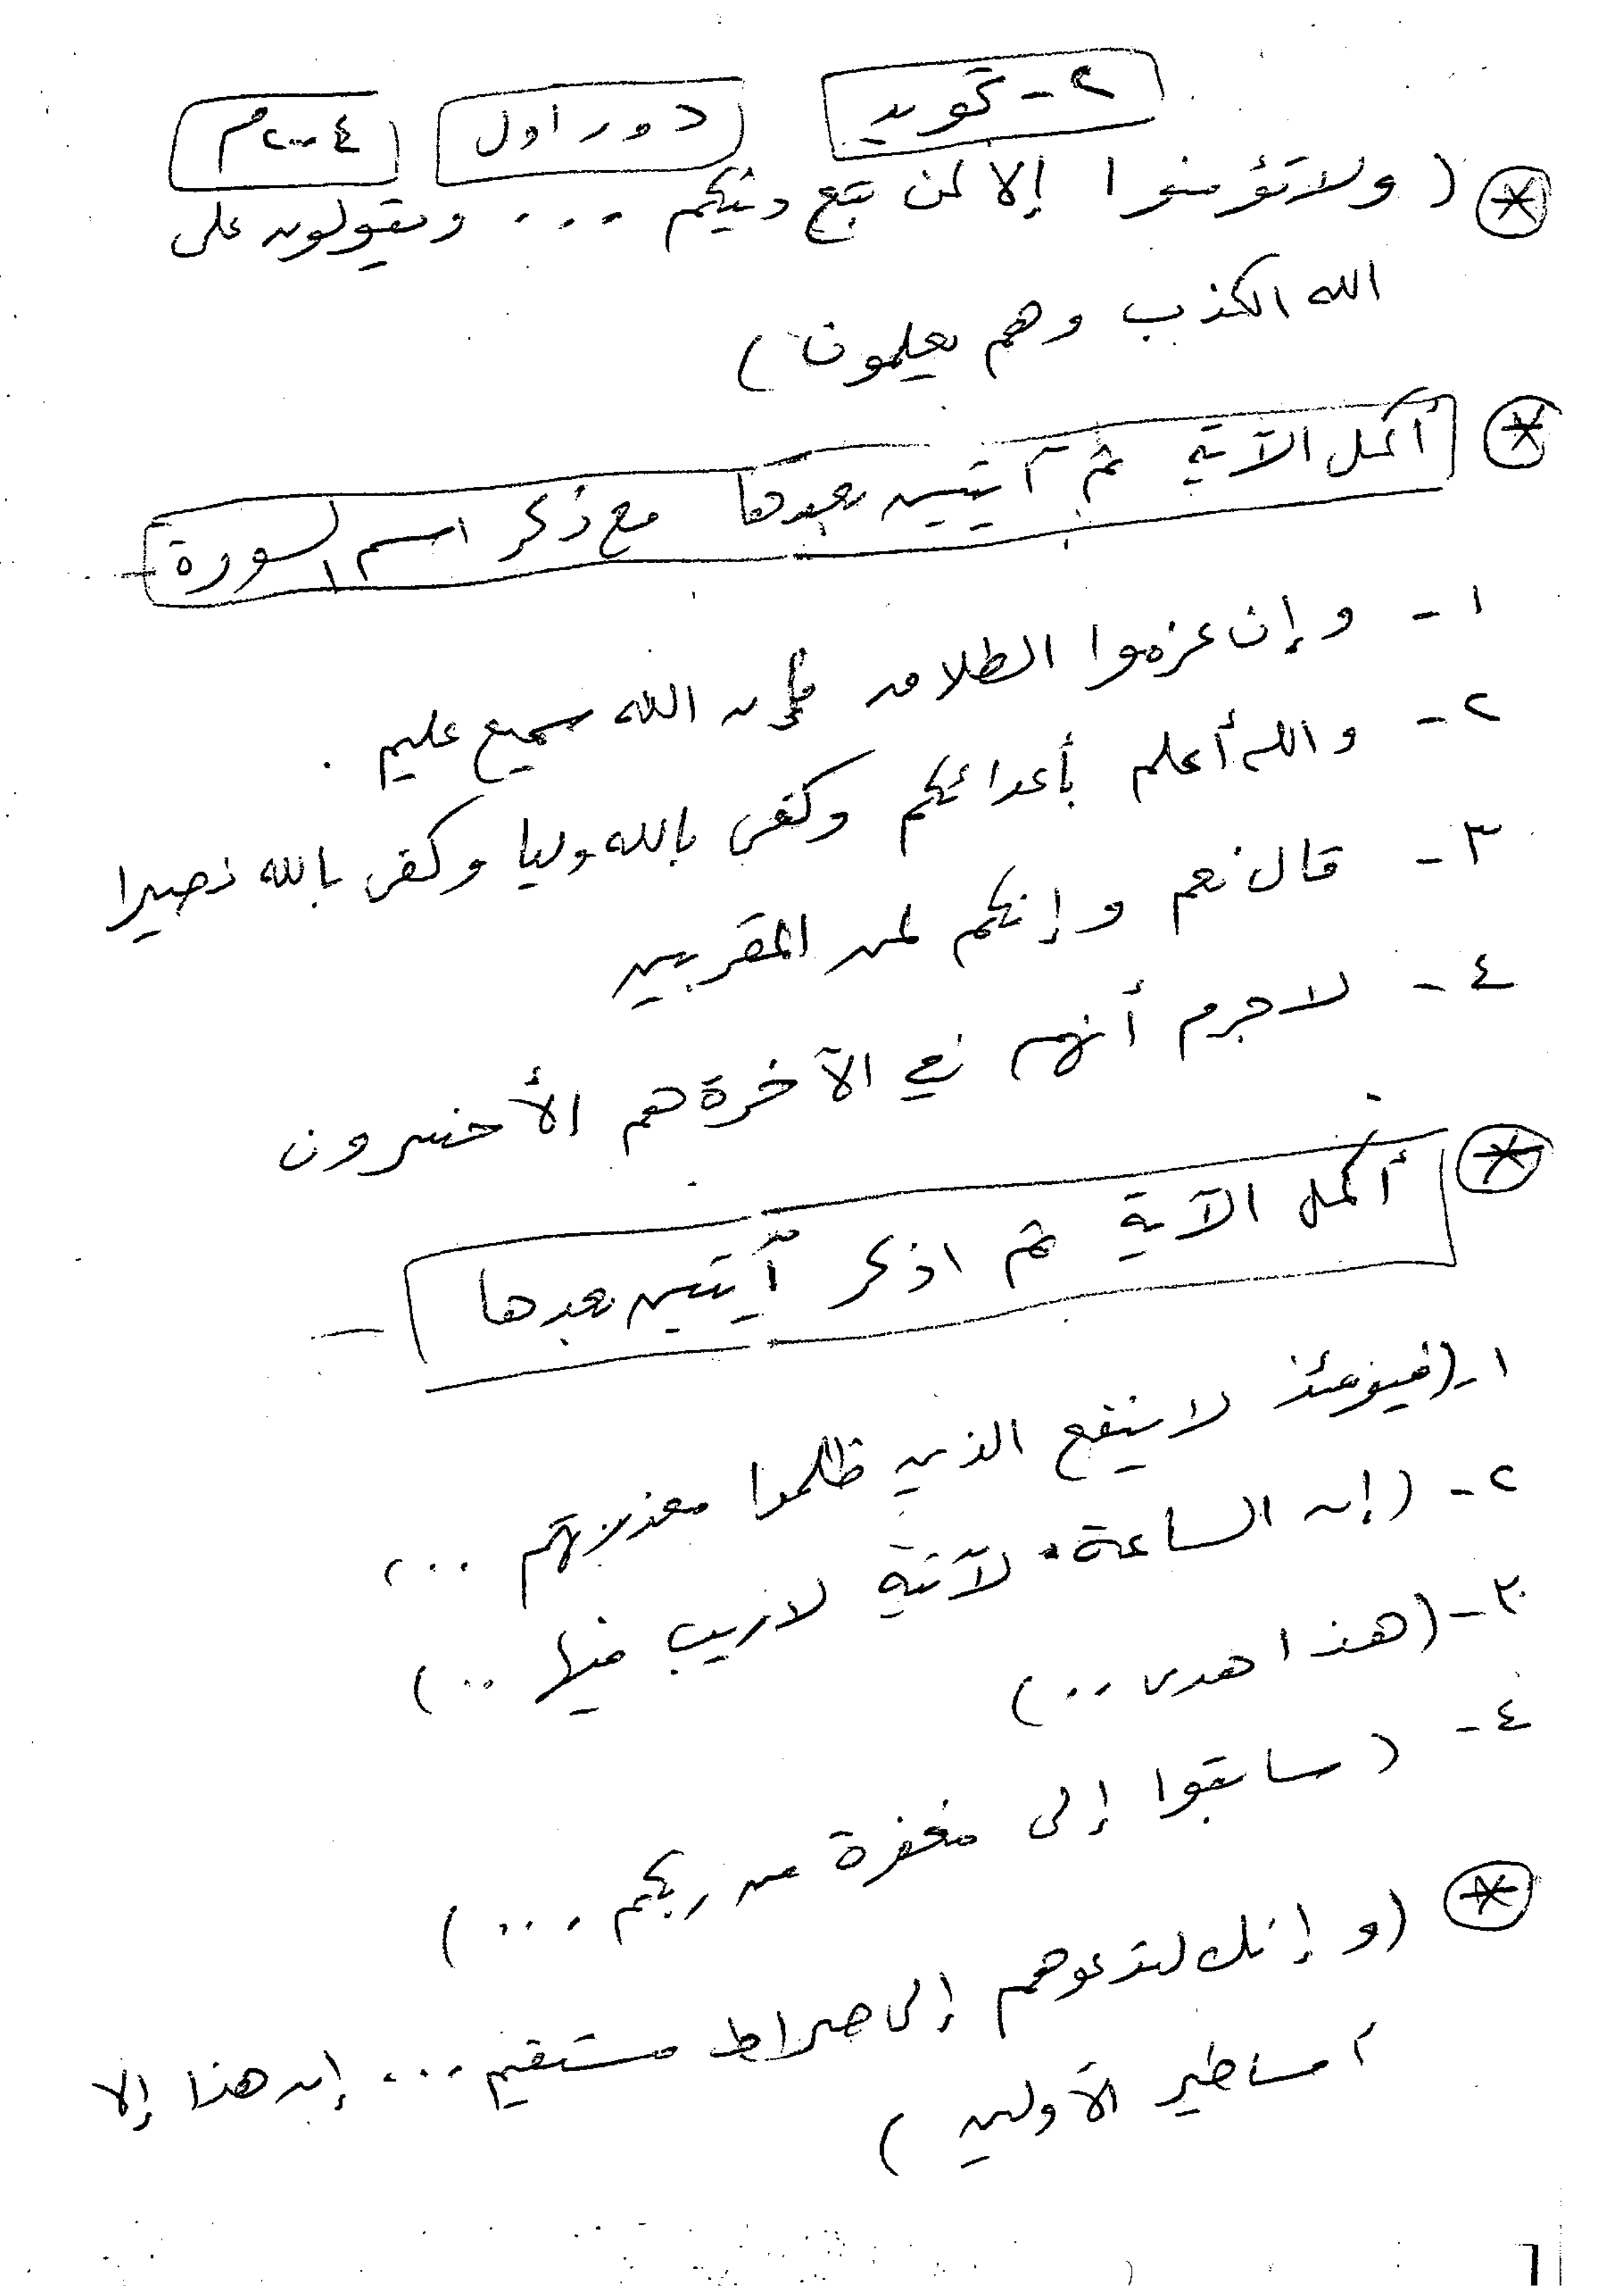 ٢- تجويد دور أول ٢٠٠٤م
(ولا تؤمنوا إلا لمن تبع دينكم ... ويقولون على
الله الكذب وهم يعلمون)
أكمل الآية ثم آيتين بعدها مع ذكر اسم السورة
١- وإن عزموا الطلاق فإن الله سميع عليم.
٢- والله أعلم بأعدائكم وكفى بالله وليا وكفى بالله نصيرا
٣- قال نعم وإنكم لمن المقربين
٤- لا جرم أنهم في الآخرة هم الأخسرون
أكمل الآية ثم اذكر آيتين بعدها
١- (فيومئذ لا ينفع الذين ظلموا معذرتهم ...)
٢- (إن الساعة لآتية لا ريب فيها ..)
٣- (هذا هدى ..)
٤- (سابقوا إلى مغفرة من ربكم ...)
(وإنك لتدعوهم إلى صراط مستقيم ... إن هذا إلا
أساطير الأولين)